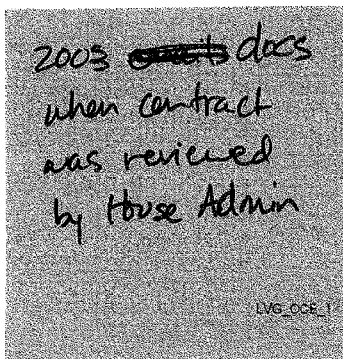 2003 docs
when contract
was reviewed
by House Admin
LVG_OCE_1